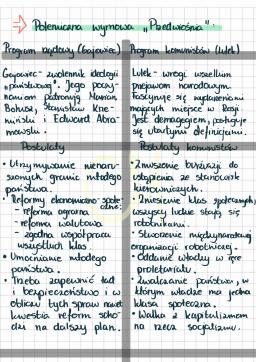 → Polemiczna wymowa „Przedwiośnia":
Program rządowy (Gajowiec)
Gajowiec - zwolennik ideologii
„państwowej". Jego poczy-
naniom patronują Marian
Bohusz, Stanisław Krze-
miński i Edward Abra-
mowski.
Postulaty
• Utrzymywanie nienaru-
szonych granic młodego
państwa.
• Reformy ekonomiczno-społe-
czne:
- reforma agrarna
- reforma walutowa
- zgodna współpraca
wszystkich klas
• Umocnianie młodego
państwa.
• Trzeba zapewnić ład
i bezpieczeństwo i w
obliczu tych spraw nawet
kwestia reform scho-
dzi na dalszy plan.
Program komunistów (Lulek)
Lulek - wrogi wszelkim
przejawom narodowym.
Fascynuje się wydarzeniami
mającymi miejsce w Rosji
Jest demagogiem, posługuje
się utartymi definicjami.
Postulaty komunistów
• Zmuszenie burżuazji do
ustąpienia ze stanowisk
kierowniczych.
• Zniesienie klas społecznych,
wszyscy ludzie stają się
robotnikami.
• Stworzenie międzynarodowej
organizacji robotniczej.
• Oddanie władzy w ręce
proletariatu.
• Zwalczanie państwa, w
którym władzę ma jedna
klasa społeczna.
• Walka z kapitalizmem
na rzecz socjalizmu.